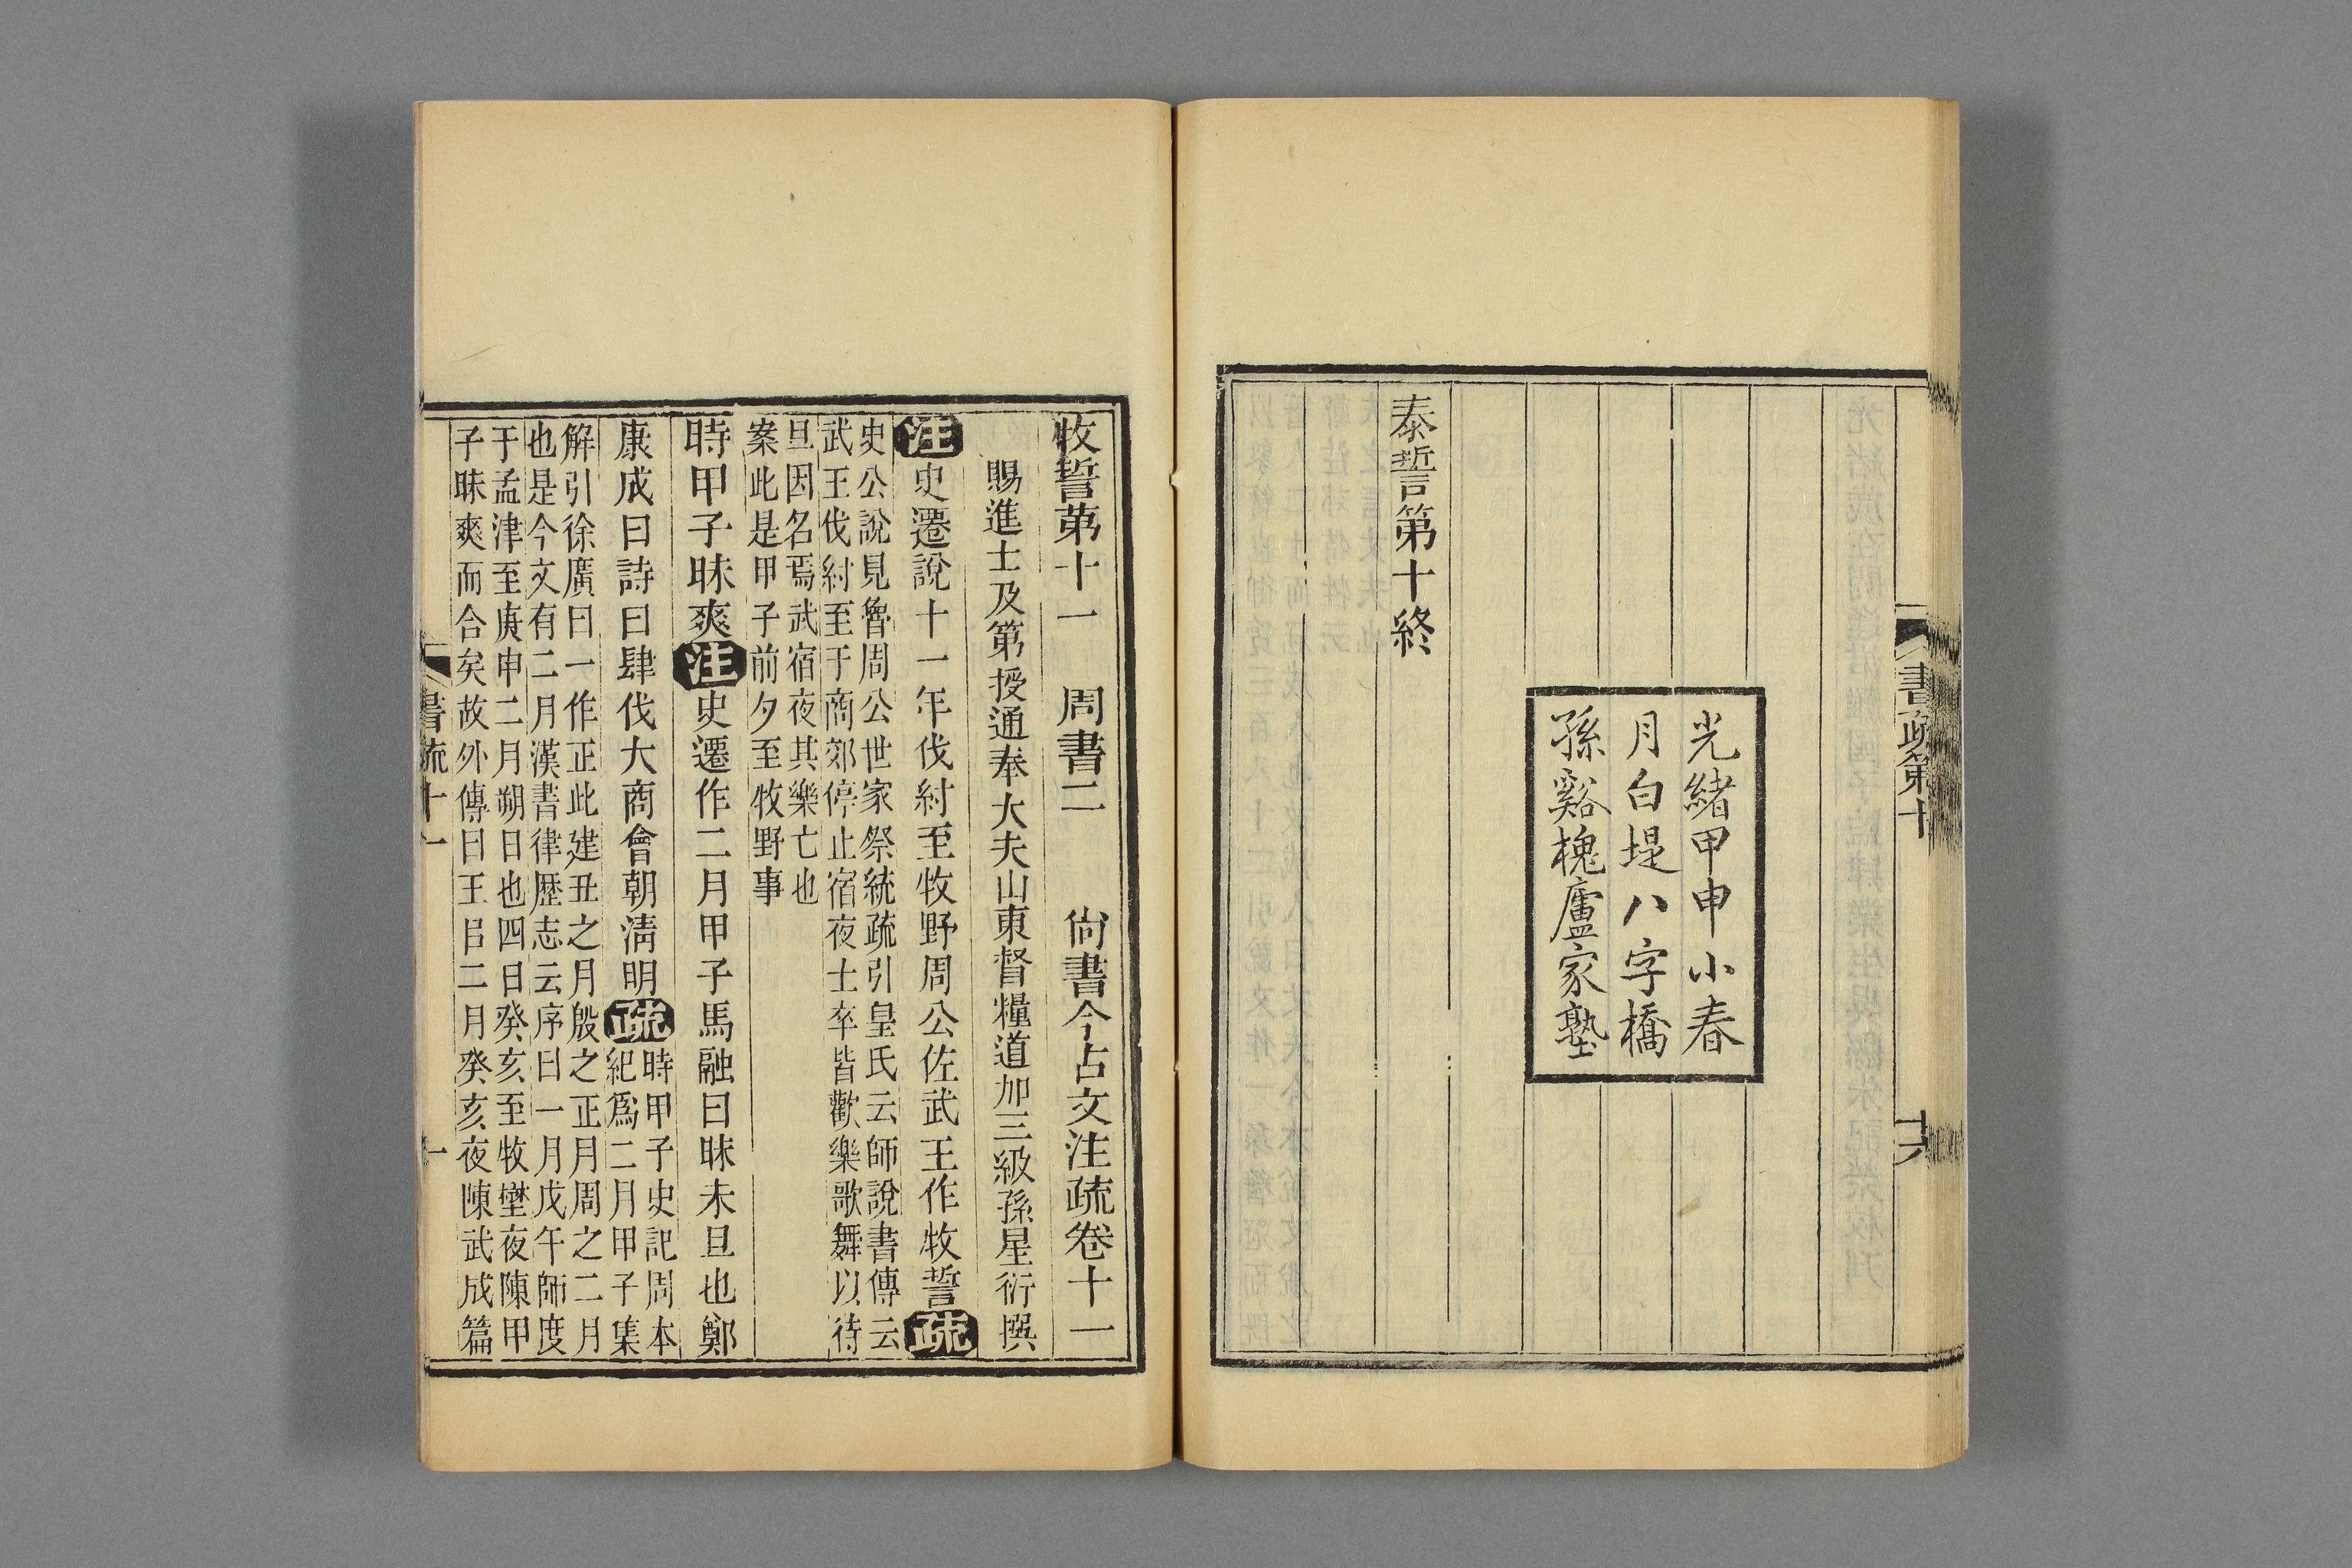 書疏第十
十六
光緒甲申小春
月白堤八字橋
孫谿槐廬家塾
泰誓第十終
牧誓第十一　周書二　尙書今古文注疏卷十一
賜進士及第授通奉大夫山東督糧道加三級孫星衍撰
注史遷說十一年伐紂至牧野周公佐武王作牧誓疏
史公說見魯周公世家祭統疏引皇氏云師說書傳云
武王伐紂至于商郊停止宿夜士卒皆歡樂歌舞以待
旦因名焉武宿夜其樂亡也
案此是甲子前夕至牧野事
時甲子昧爽注史遷作二月甲子馬融曰昧未旦也鄭
康成曰詩曰肆伐大商會朝淸明疏時甲子史記周本
紀爲二月甲子集
解引徐廣曰一作正此建丑之月殷之正月周之二月
也是今文有二月漢書律歷志云序曰一月戊午師度
于孟津至庚申二月朔日也四日癸亥至牧壄夜陳甲
子昧爽而合矣故外傳曰王㠯二月癸亥夜陳武成篇
書疏十一
一